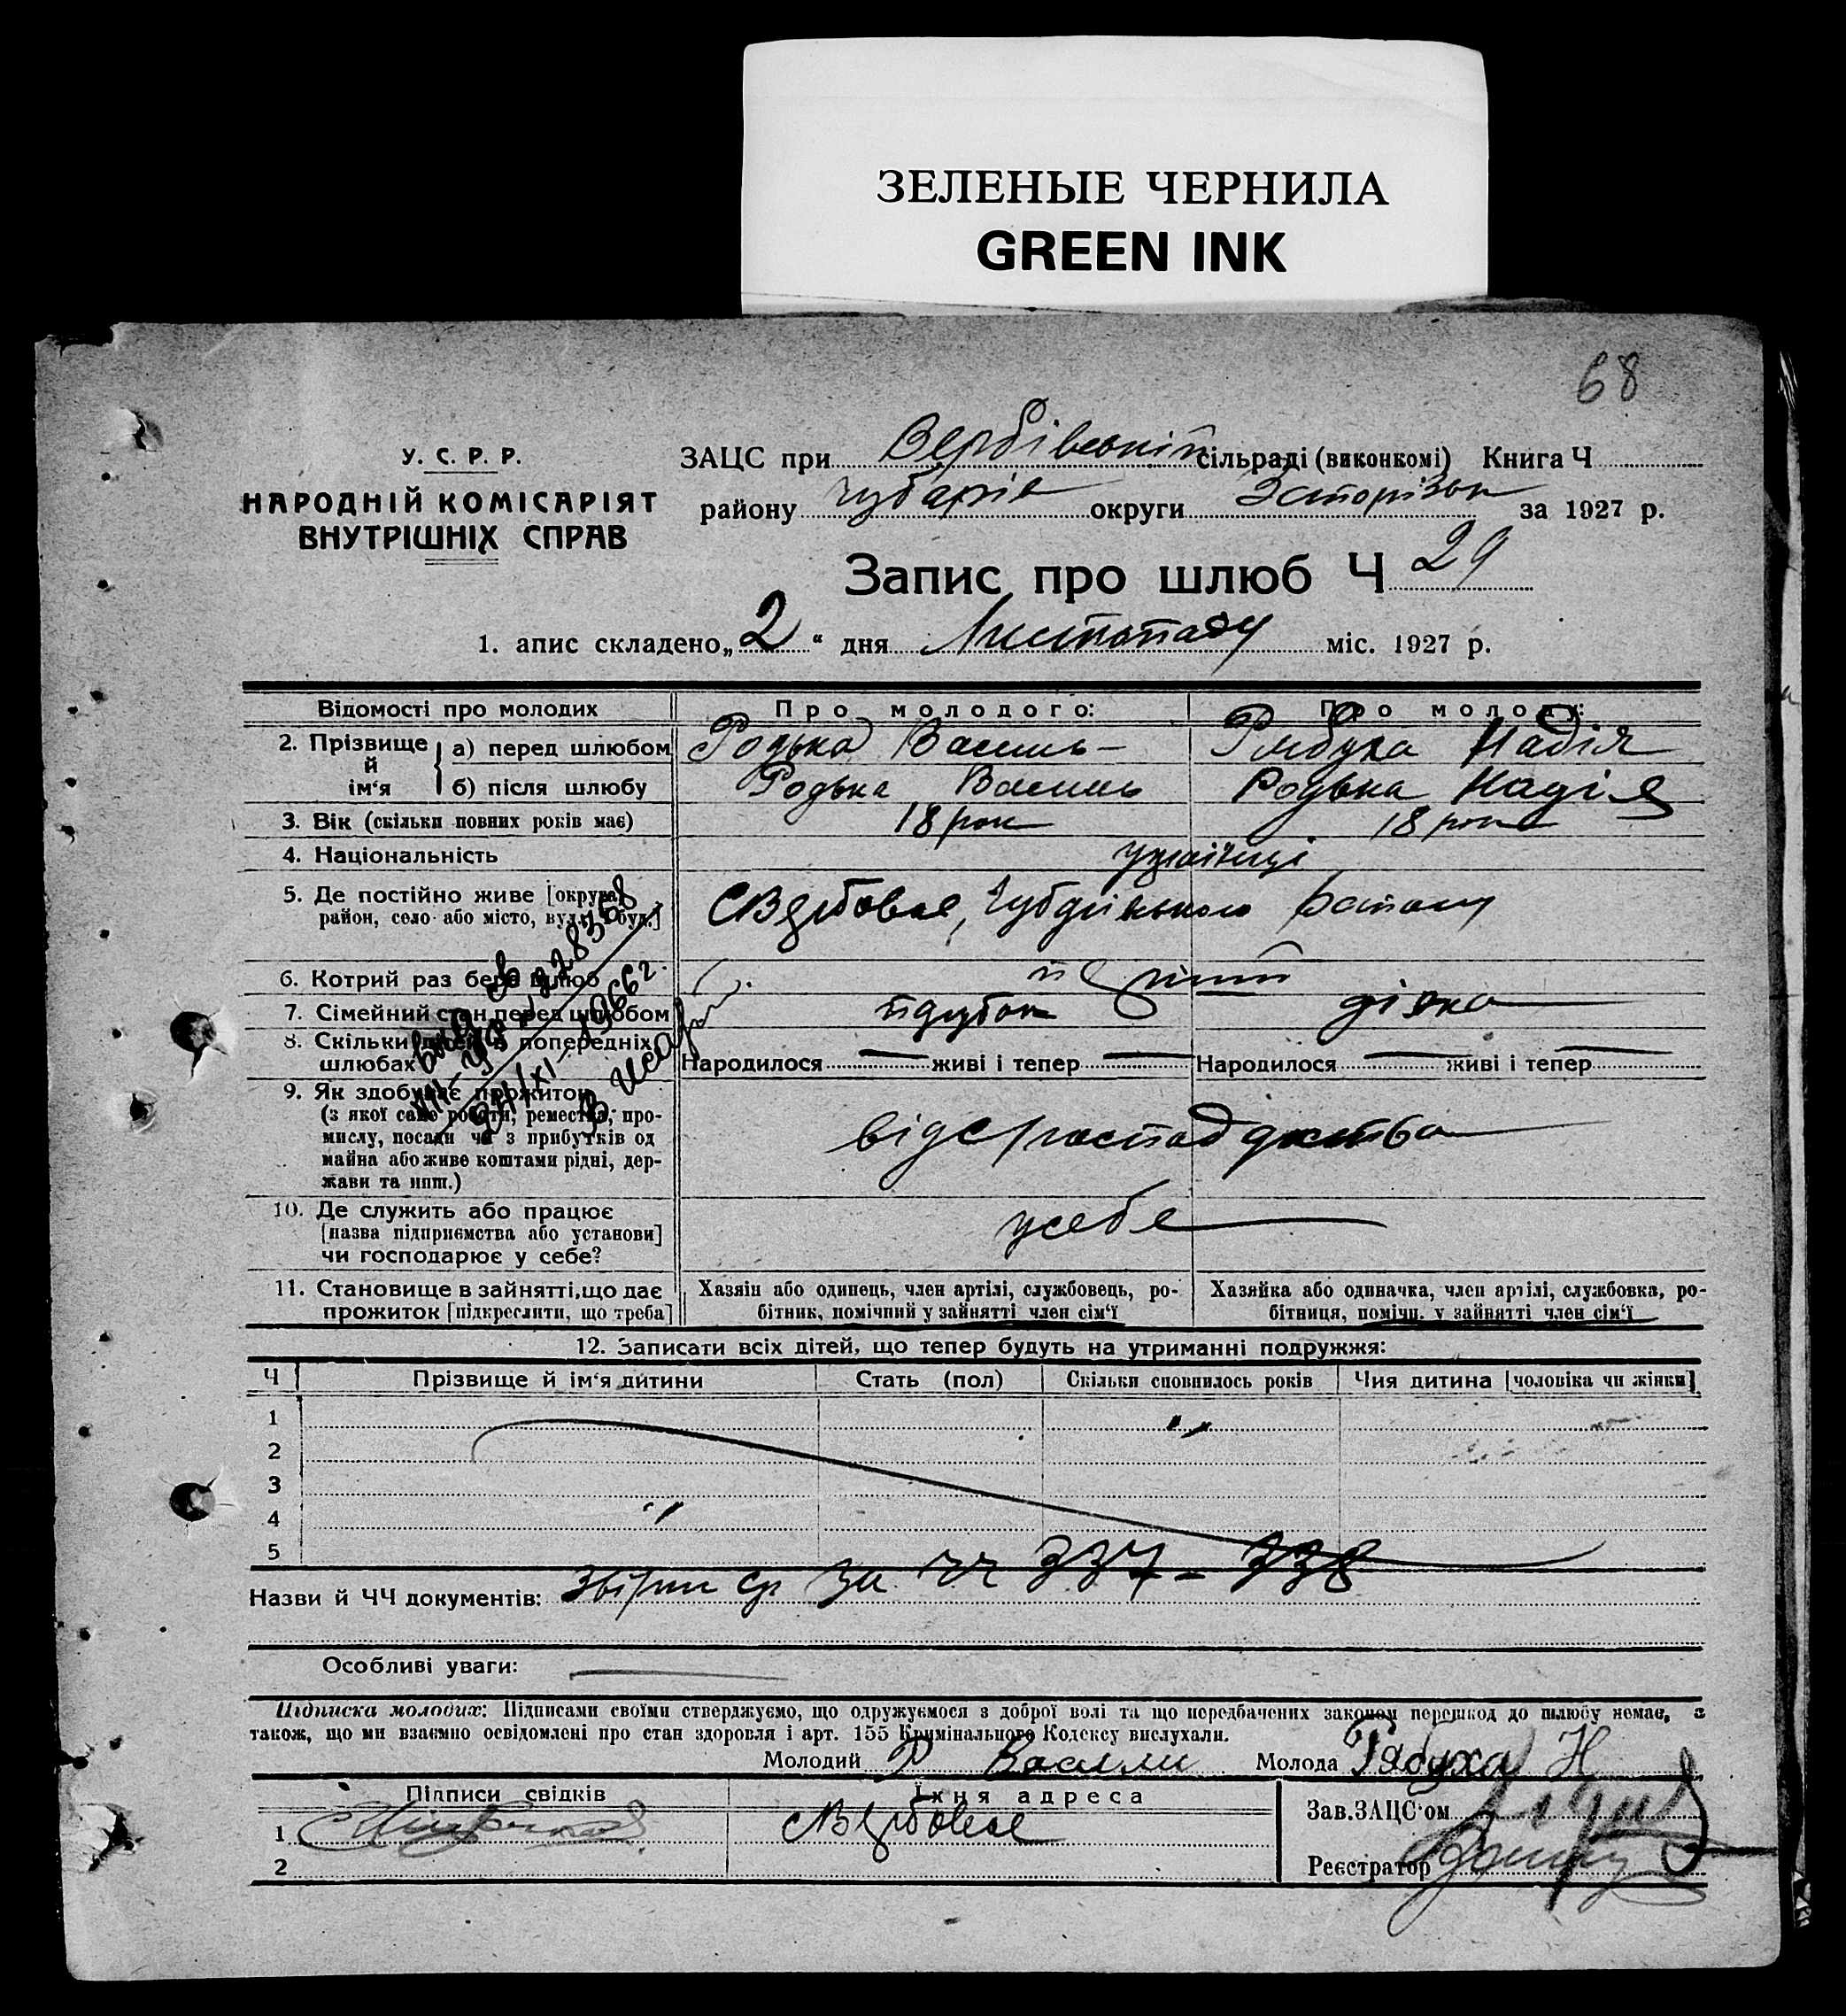 ЗЕЛЕНЫЕ ЧЕРНИЛА
GREEN INK
68
У. С. Р. Р.
НАРОДНІЙ КОМІСАРІЯТ
ВНУТРІШНІХ СПРАВ
ЗАЦС при Вербівській сільраді (виконкомі) Книга Ч
району Чубарів округи Запоріжж за 1927 р.
Запис про шлюб Ч 29
1. апис складено „2“ дня Листопаду міс. 1927 р.
Відомості про молодих Про молодого: Про молоду:
2. Прізвище й ім‘я а) перед шлюбом Родька Василь Рябуха Надія
б) після шлюбу Родька Василь Родька Надія
3. Вік (скільки повних років має) 18 рок 18 рок
4. Національність українці
5. Де постійно живе [округа,
район, село або місто, вул., буд.] С Вербове, Чубарівського
6. Котрий раз бере шлюб перший
7. Сімейний стан перед шлюбом парубок дівка
8. Скільки дітей в попередніх
шлюбах Народилося живі і тепер Народилося живі і тепер
9. Як здобуває прожиток
(з якої саме роботи, ремества, про-
мислу, посади чи з прибутків од
майна або живе коштами рідні, дер-
жави та инш.)
від с господарства
10. Де служить або працює
[назва підприємства або установи]
чи господарює у себе?
у себе
11. Становище в зайнятті, що дає
прожиток [підкреслити, що треба]
Хазяін або одинець, член артілі, службовець, ро-
бітник, помічний у зайнятті член сім‘ї
Хазяйка або одиначка, член артілі, службовка, ро-
бітниця, помічн. у зайнятті член сім‘ї
12. Записати всіх дітей, що тепер будуть на утриманні подружжя:
Ч Прізвище й ім‘я дитини Стать (пол) Скільки сповнилось років Чия дитина [чоловіка чи жінки]
1
2
3
4
5
Назви й ЧЧ документів: за ЧЧ 337 - 338
Особливі уваги:
Підписка молодих: Підписами своїми стверджуємо, що одружуємося з доброї волі та що передбачених законом перешкод до шлюбу немає, а
також, що ми взаємно освідомлені про стан здоровля і арт. 155 Кримінального Кодексу вислухали.
Молодий Р Василь Молода Рябуха Н
Підписи свідків Їхня адреса
1 С Вербове
2
Зав.ЗАЦС‘ом
Реєстратор